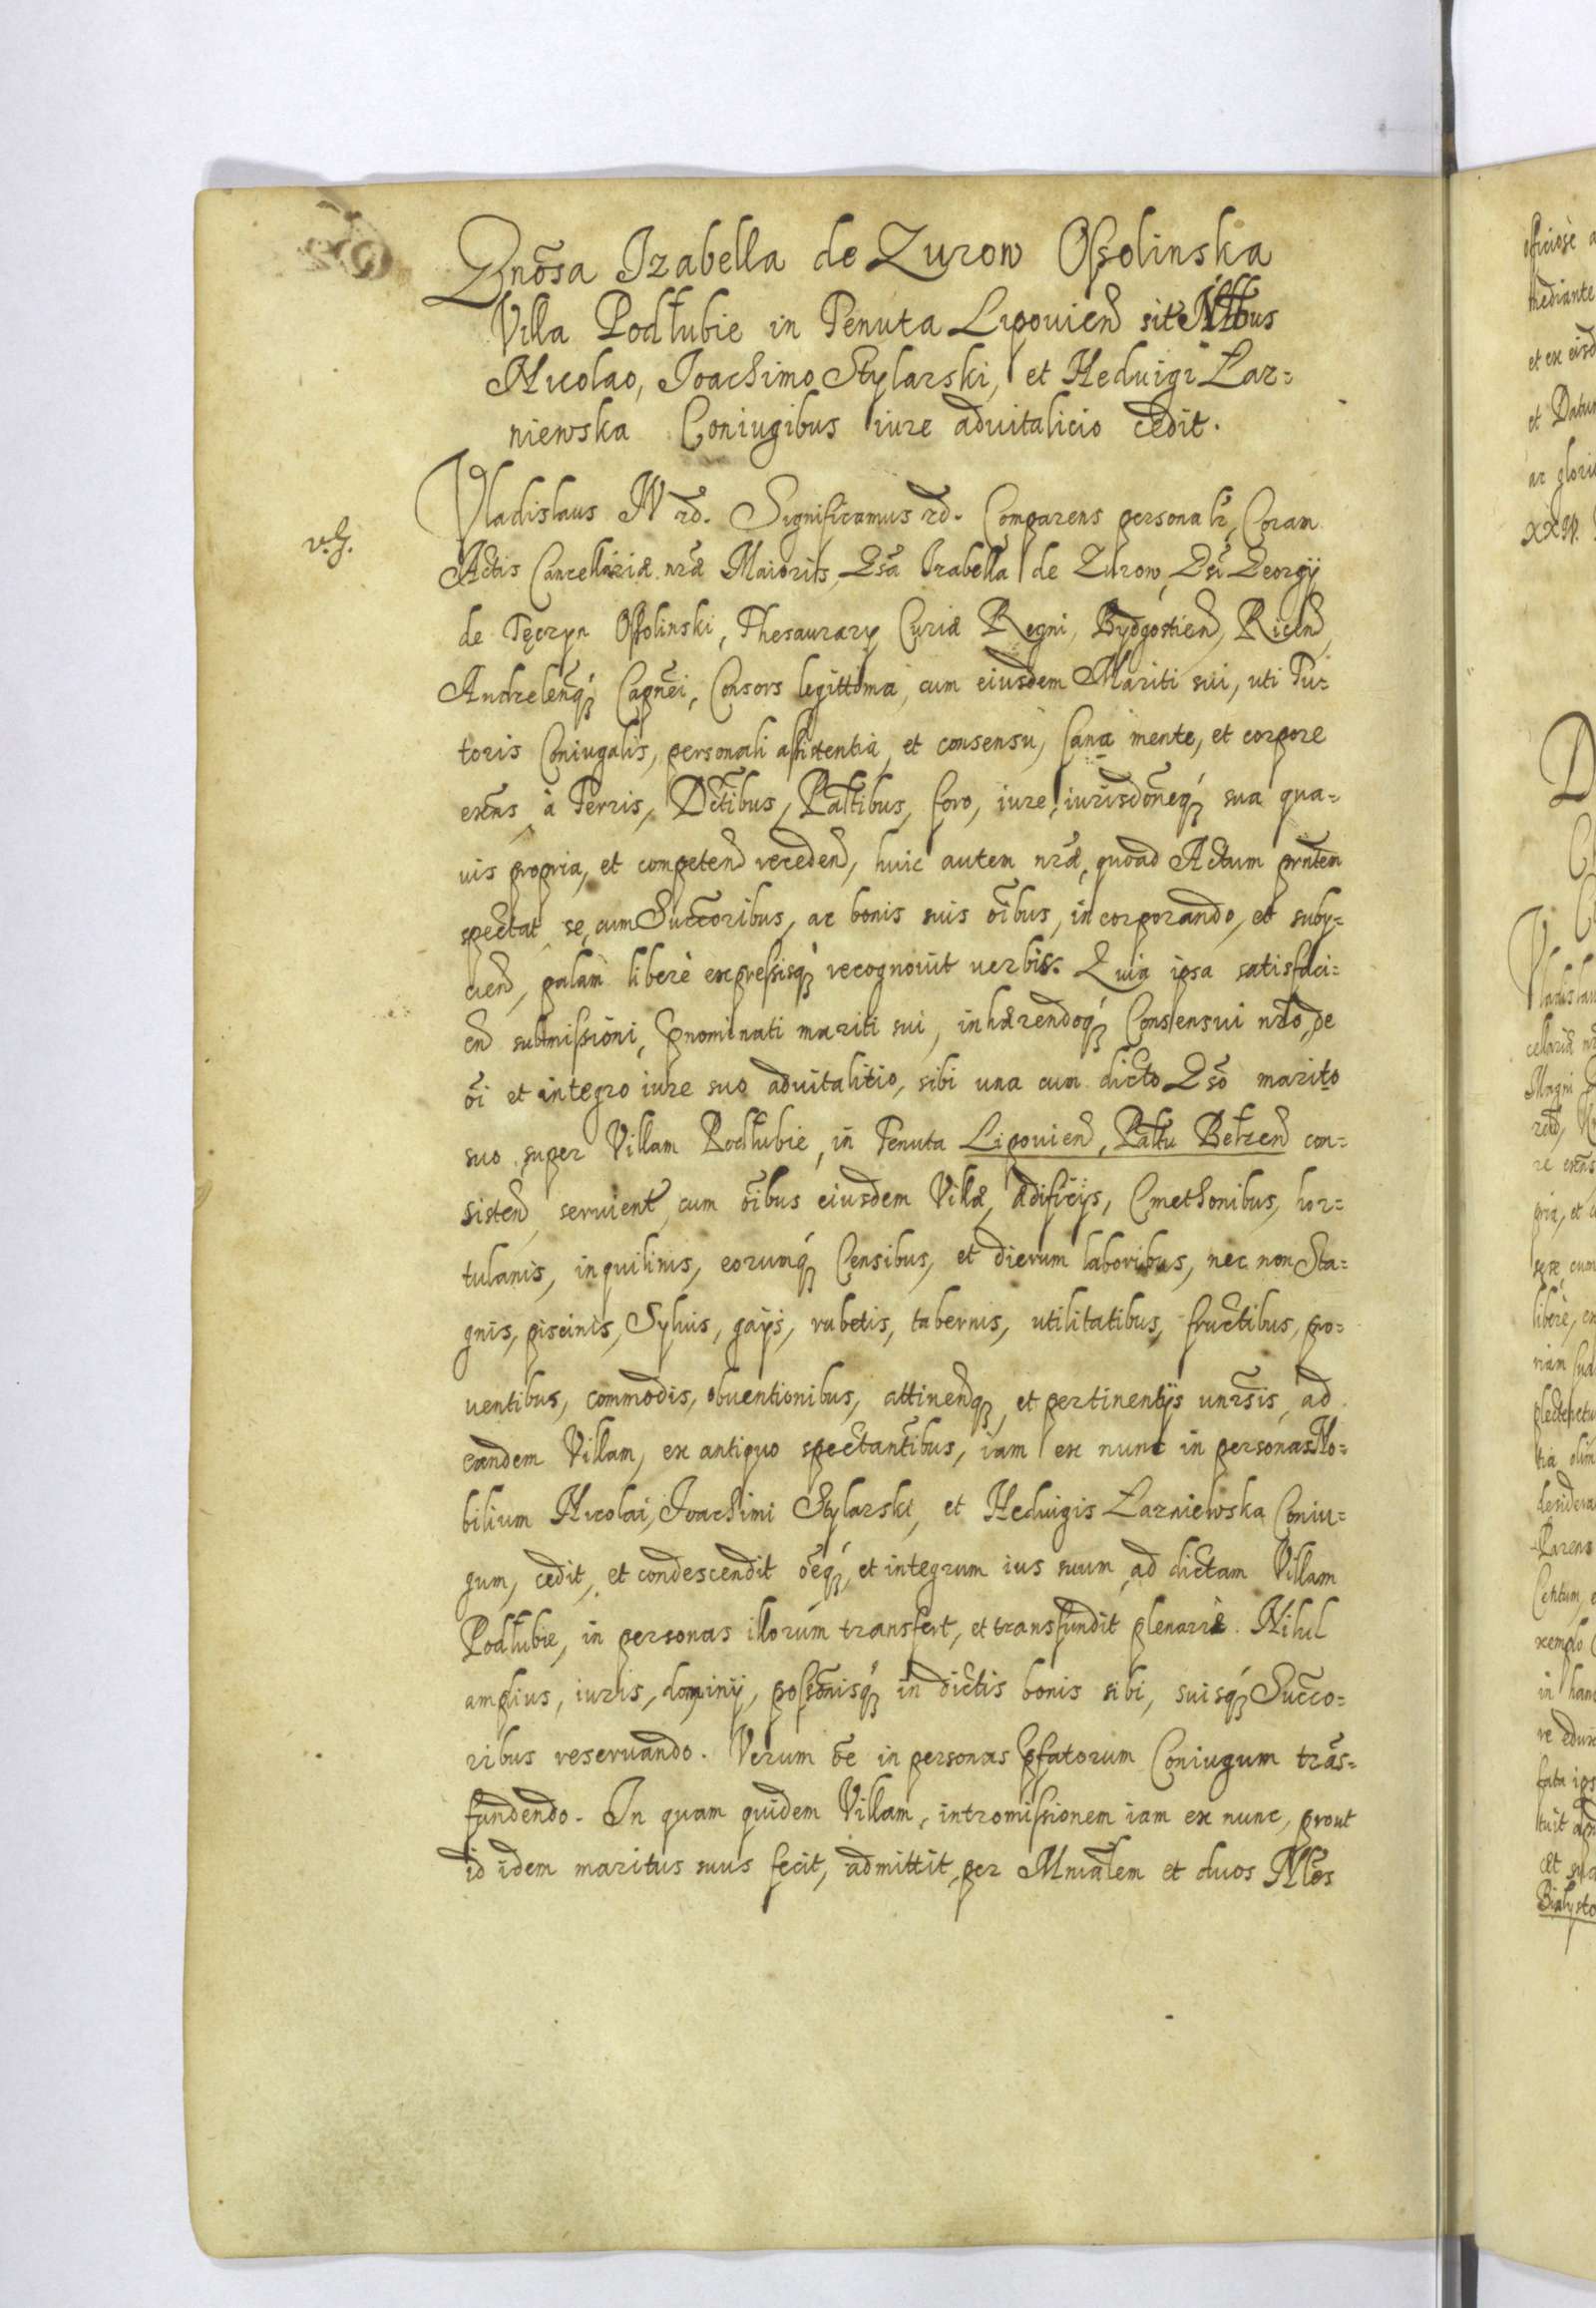 Gnosa Izabella de Zurow Ossolinska
Villa Podłubie in Tenuta Lipouien sit Nllbus
Nicolao, Joachimo Stylarski, et Heduigi Łar=
niewska Coniugibus iure aduitalicio cedit.
Vladislaus IV rd. Significamus rd. Comparens personalr, Coram
v.g.
Actis Cancellariæ nræ Maioris, Gsa Izabella de Zurow, Gsi Georgij
de Tęczyn Ossolinski, Thesaurarij Curiæ Regni, Bydgostien, Ricen,
Andrelenq Capnei, Consors legittima, cum eiusdem Mariti sui, uti Tu=
toris Coniugalis, personali assistentia, et consensu, sana mente, et corpore
exens, à Terris, Dctibus, Paltibus, foro, iure, iurisdoneq sua qua=
uis propria, et competen receden, huic autem nræ, quoad Actum prntem
spectat, se, cum Succoribus, ac bonis suis oibus, incorporando, et subij=
cien, palam liberè expressisq recognouit uerbis. Quia ipsa satisfaci=
en submissioni, pnominati mariti sui, inhærendoq Consensui nro, de
oi et integro iure suo aduitalitio, sibi una cum dicto Gso marito
suo super Villam Podłubie, in Tenuta Lipouien, Paltu Bełzen con=
sisten, seruient, cum oibus eiusdem Villæ, ædificijs, Cmethonibus, hor=
tulanis, inquilinis, eorumq Censibus, et dierum laboribus, nec non Sta=
gnis, piscinis, Syluis, gaijs, rubetis, tabernis, utilitatibus, fructibus, pro=
uentibus, commodis, obuentionibus, attinenq, et pertinentijs unrsis, ad
eandem Villam, ex antiquo spectantibus, iam ex nunc in personas No=
bilium Nicolai, Joachimi Stylarski, et Heduigis Łarniewska Coniu=
gum, cedit, et condescendit oeq, et integrum ius suum ad dictam Villam
Podłubie, in personas illorum transfert, et transfundit plenariè. Nihil
amplius, iuris, dominij, possonisq in dictis bonis sibi, suisq Succo=
ribus reseruando. Verum oe in personas pfatorum Coniugum tras=
fundendo. In quam quidem Villam, intromissionem iam ex nunc, prout
id idem maritus suus fecit, admittit, per Mnialem et duos Nles